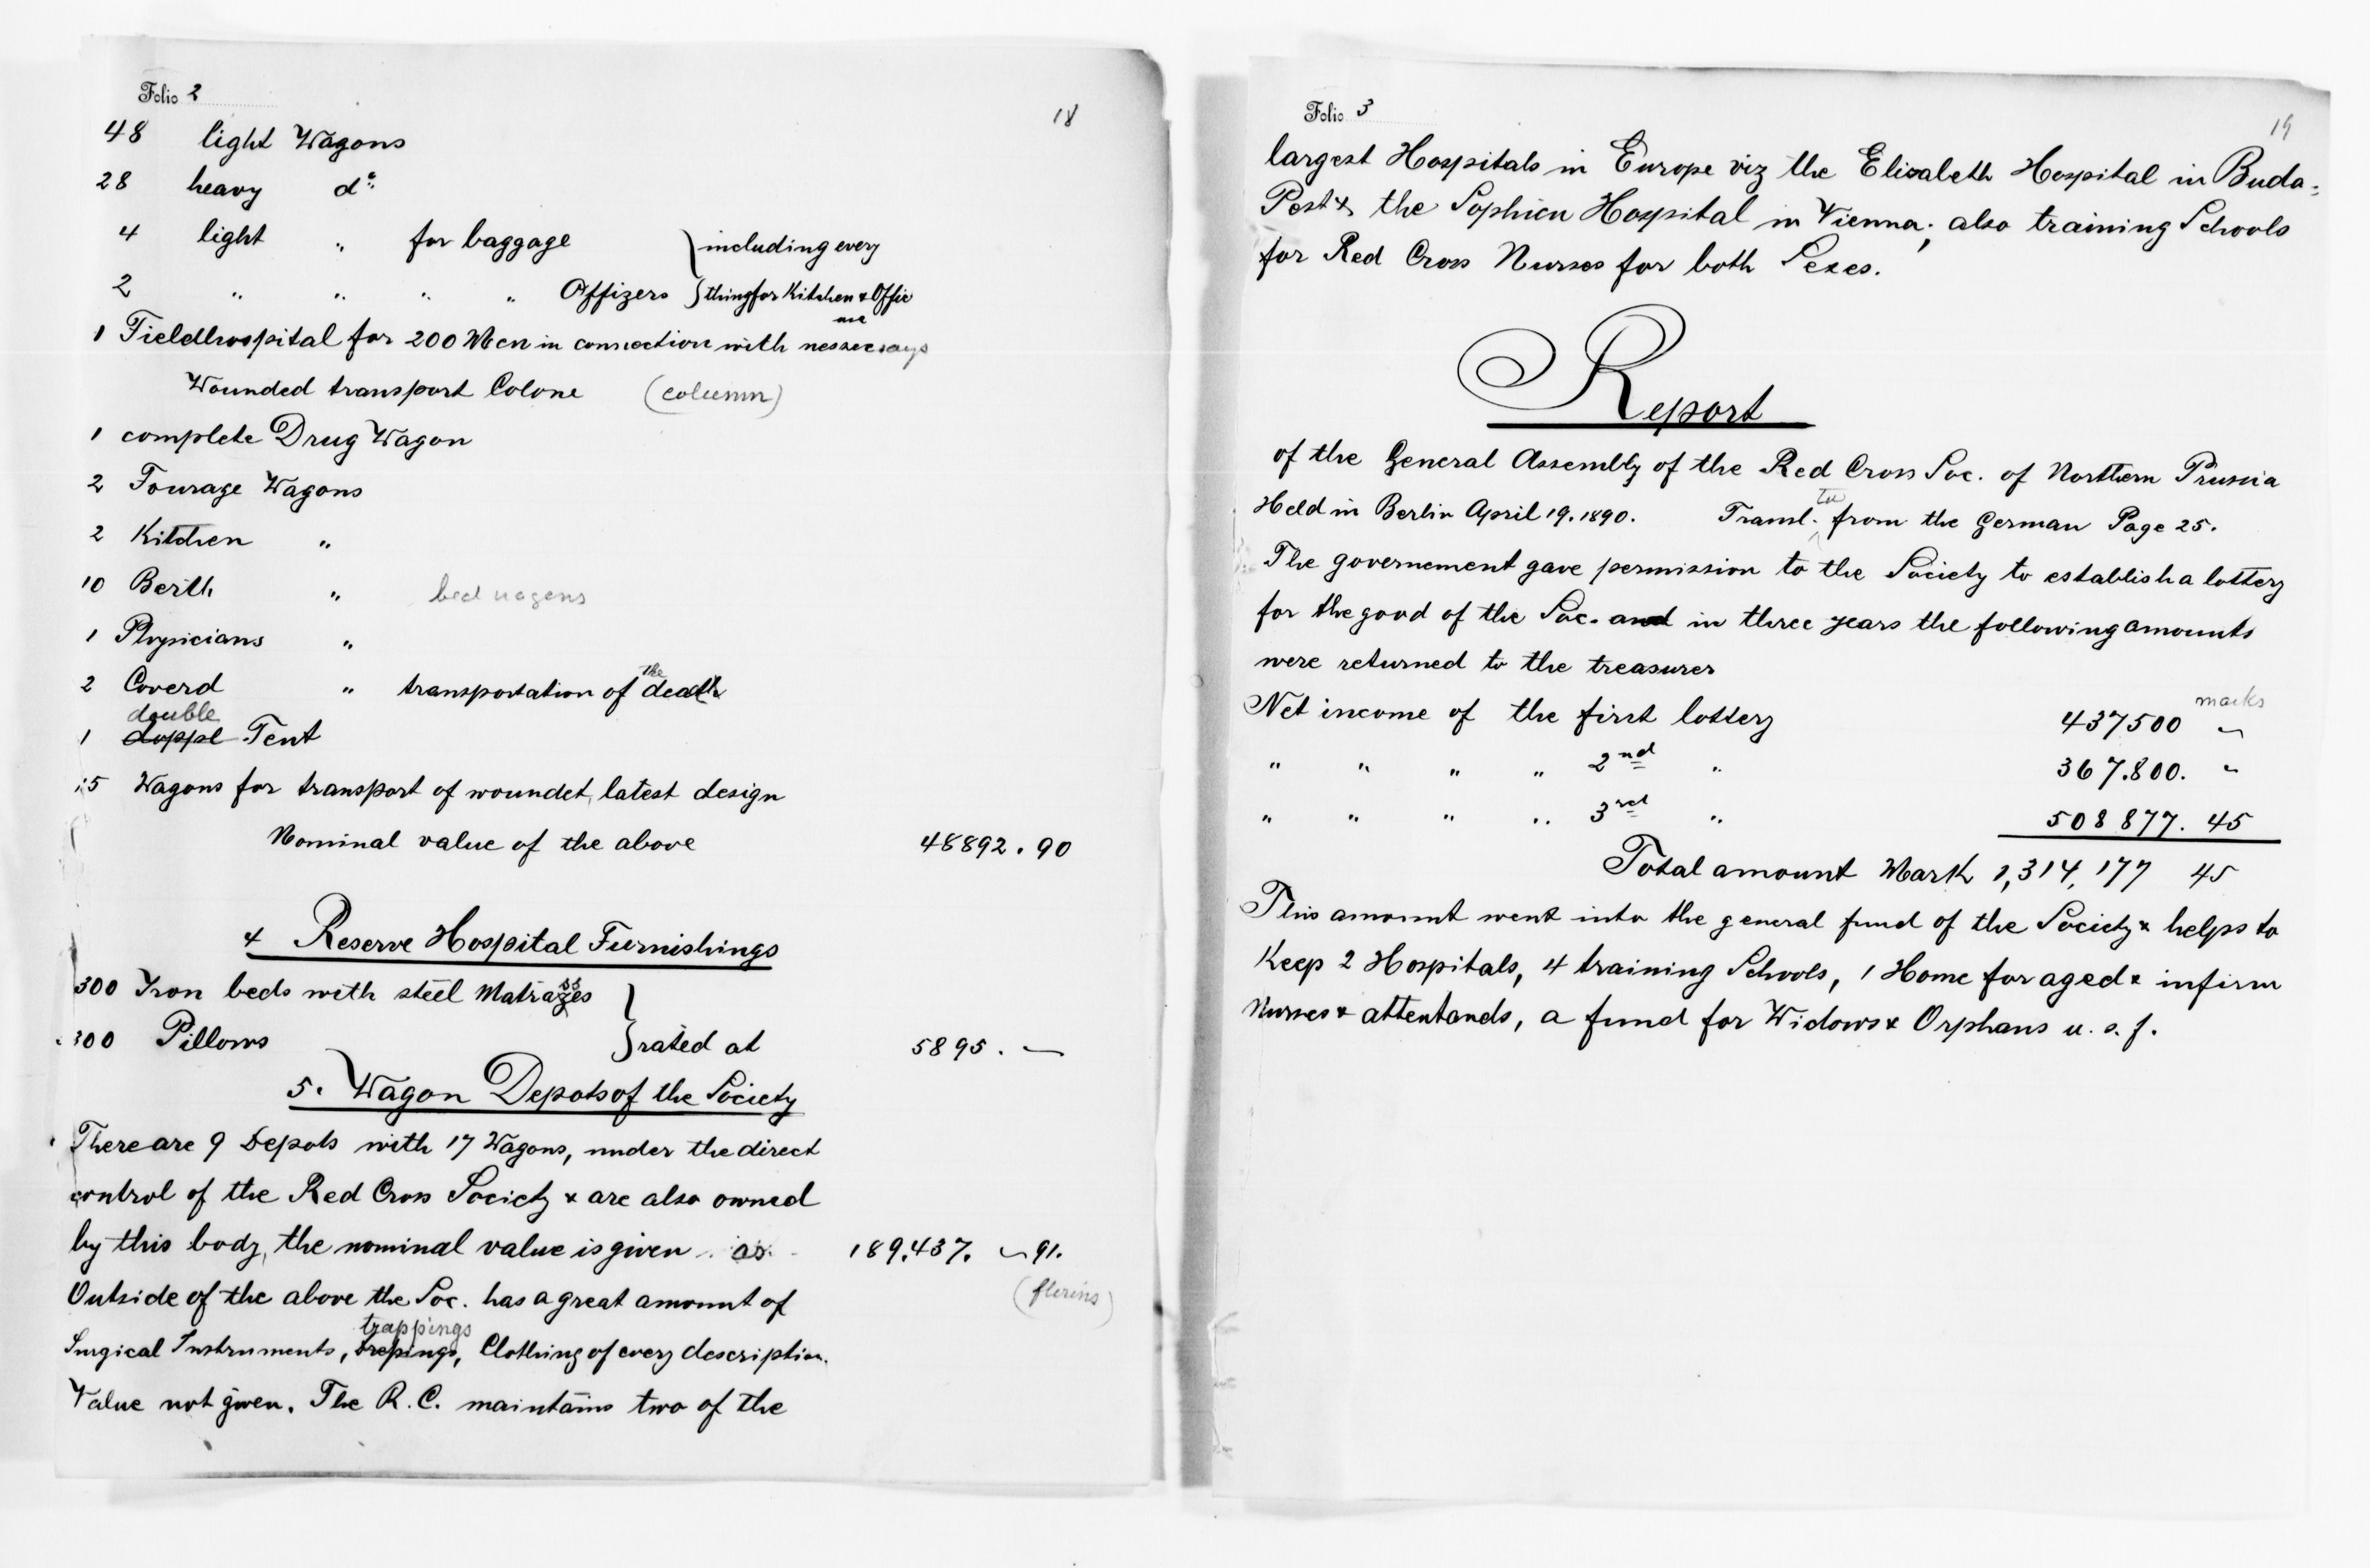 Folio 2
18
48 light Wagons
28 heavy do
4 light " for baggage } including every
2 " " " " Offizers } thing for Kitchen & Office
use
1 Fieldhospital for 200 Men in connection with nessecsays
Wounded transport Colone (column)
1 complete Drug Wagon
2 Fourage Wagons
2 Kitchen "
10 Berth " bed wagens
1 Physicians "
2 Coverd " transportation of the death
double
1 doppl Tent
15 Wagons for transport of woundet, latest design
Nominal value of the above 48892. 90
4 Reserve Hospital Furnishings
ss
300 Iron beds with steel Matrazes }
300 Pillows } rated at 5895. —
5. Wagon Depots of the Society
There are 9 Depots with 17 Wagons, under the direct
control of the Red Cross Society & are also owned
by this body, the nominal value is given as 189.437. 91.
(florins)
Outside of the above the Soc. has a great amount of
trappings
Surgical Instruments, trepings, Clothing of every description.
Value not given. The R. C. maintains two of the
Folio 3
19
largest Hospitals in Europe viz the Elisabeth Hospital in Buda-
Pest & the Sophien Hospital in Vienna; also training Schools
for Red Cross Nurses for both Sexes.
Report
of the General Assembly of the Red Cross Soc. of Northern Prussia
Held in Berlin April 19. 1890. Transl. from the German Page 25.
The governement gave permission to the Society to establish a lottery
for the good of the Soc. and in three years the following amounts
were returned to the treasurer
marks
Net income of the first lottery 437500 "
" " " " 2nd " 367.800. "
" " " " 3rd " 508 877. 45
Total amount Mark 1,314,177 45
This amount went into the general fund of the Society & helps to
Keep 2 Hospitals, 4 training Schools, 1 Home for aged & infirm
Nurses & attentands, a fund for Widows & Orphans u. s. f.